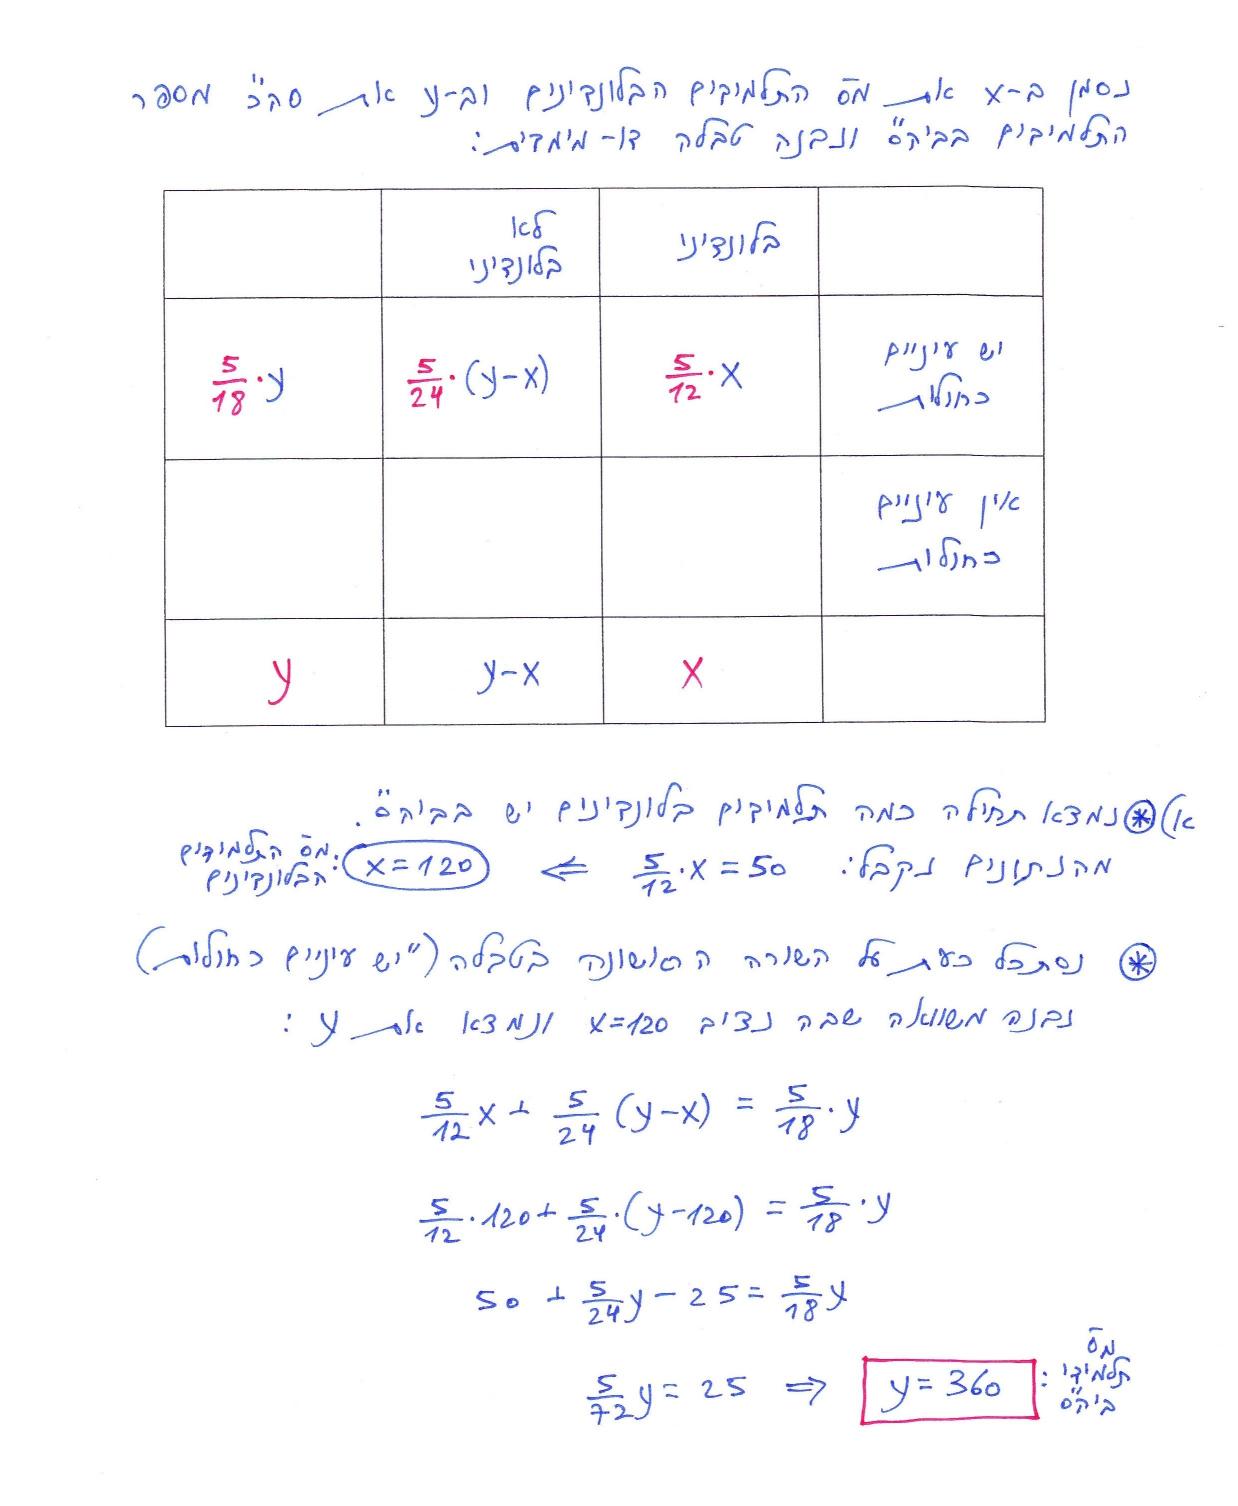 נסמן ב-x את מס' התלמידים הבלונדינים וב-y את סה"כ מספר
התלמידים בביה"ס ונבנה טבלה דו-מימדית:
בלונדיני
לא
בלונדיני
יש עיניים
כחולות
5/12 · x
5/24 · (y-x)
5/18 · y
אין עיניים
כחולות
x
y-x
y
א) * נמצא תחילה כמה תלמידים בלונדינים יש בביה"ס.
מהנתונים נקבל: 5/12 · x = 50 ⇐ x = 120 :מס' התלמידים
הבלונדינים
* נסתכל כעת על השורה הראשונה בטבלה ("יש עיניים כחולות)
נבנה משוואה שבה נציב x=120 ונמצא את y :
5/12 x + 5/24 (y-x) = 5/18 · y
5/12 · 120 + 5/24 · (y-120) = 5/18 · y
50 + 5/24 y - 25 = 5/18 y
5/72 y = 25 ⇒ y = 360 : מס'
תלמידי
ביה"ס